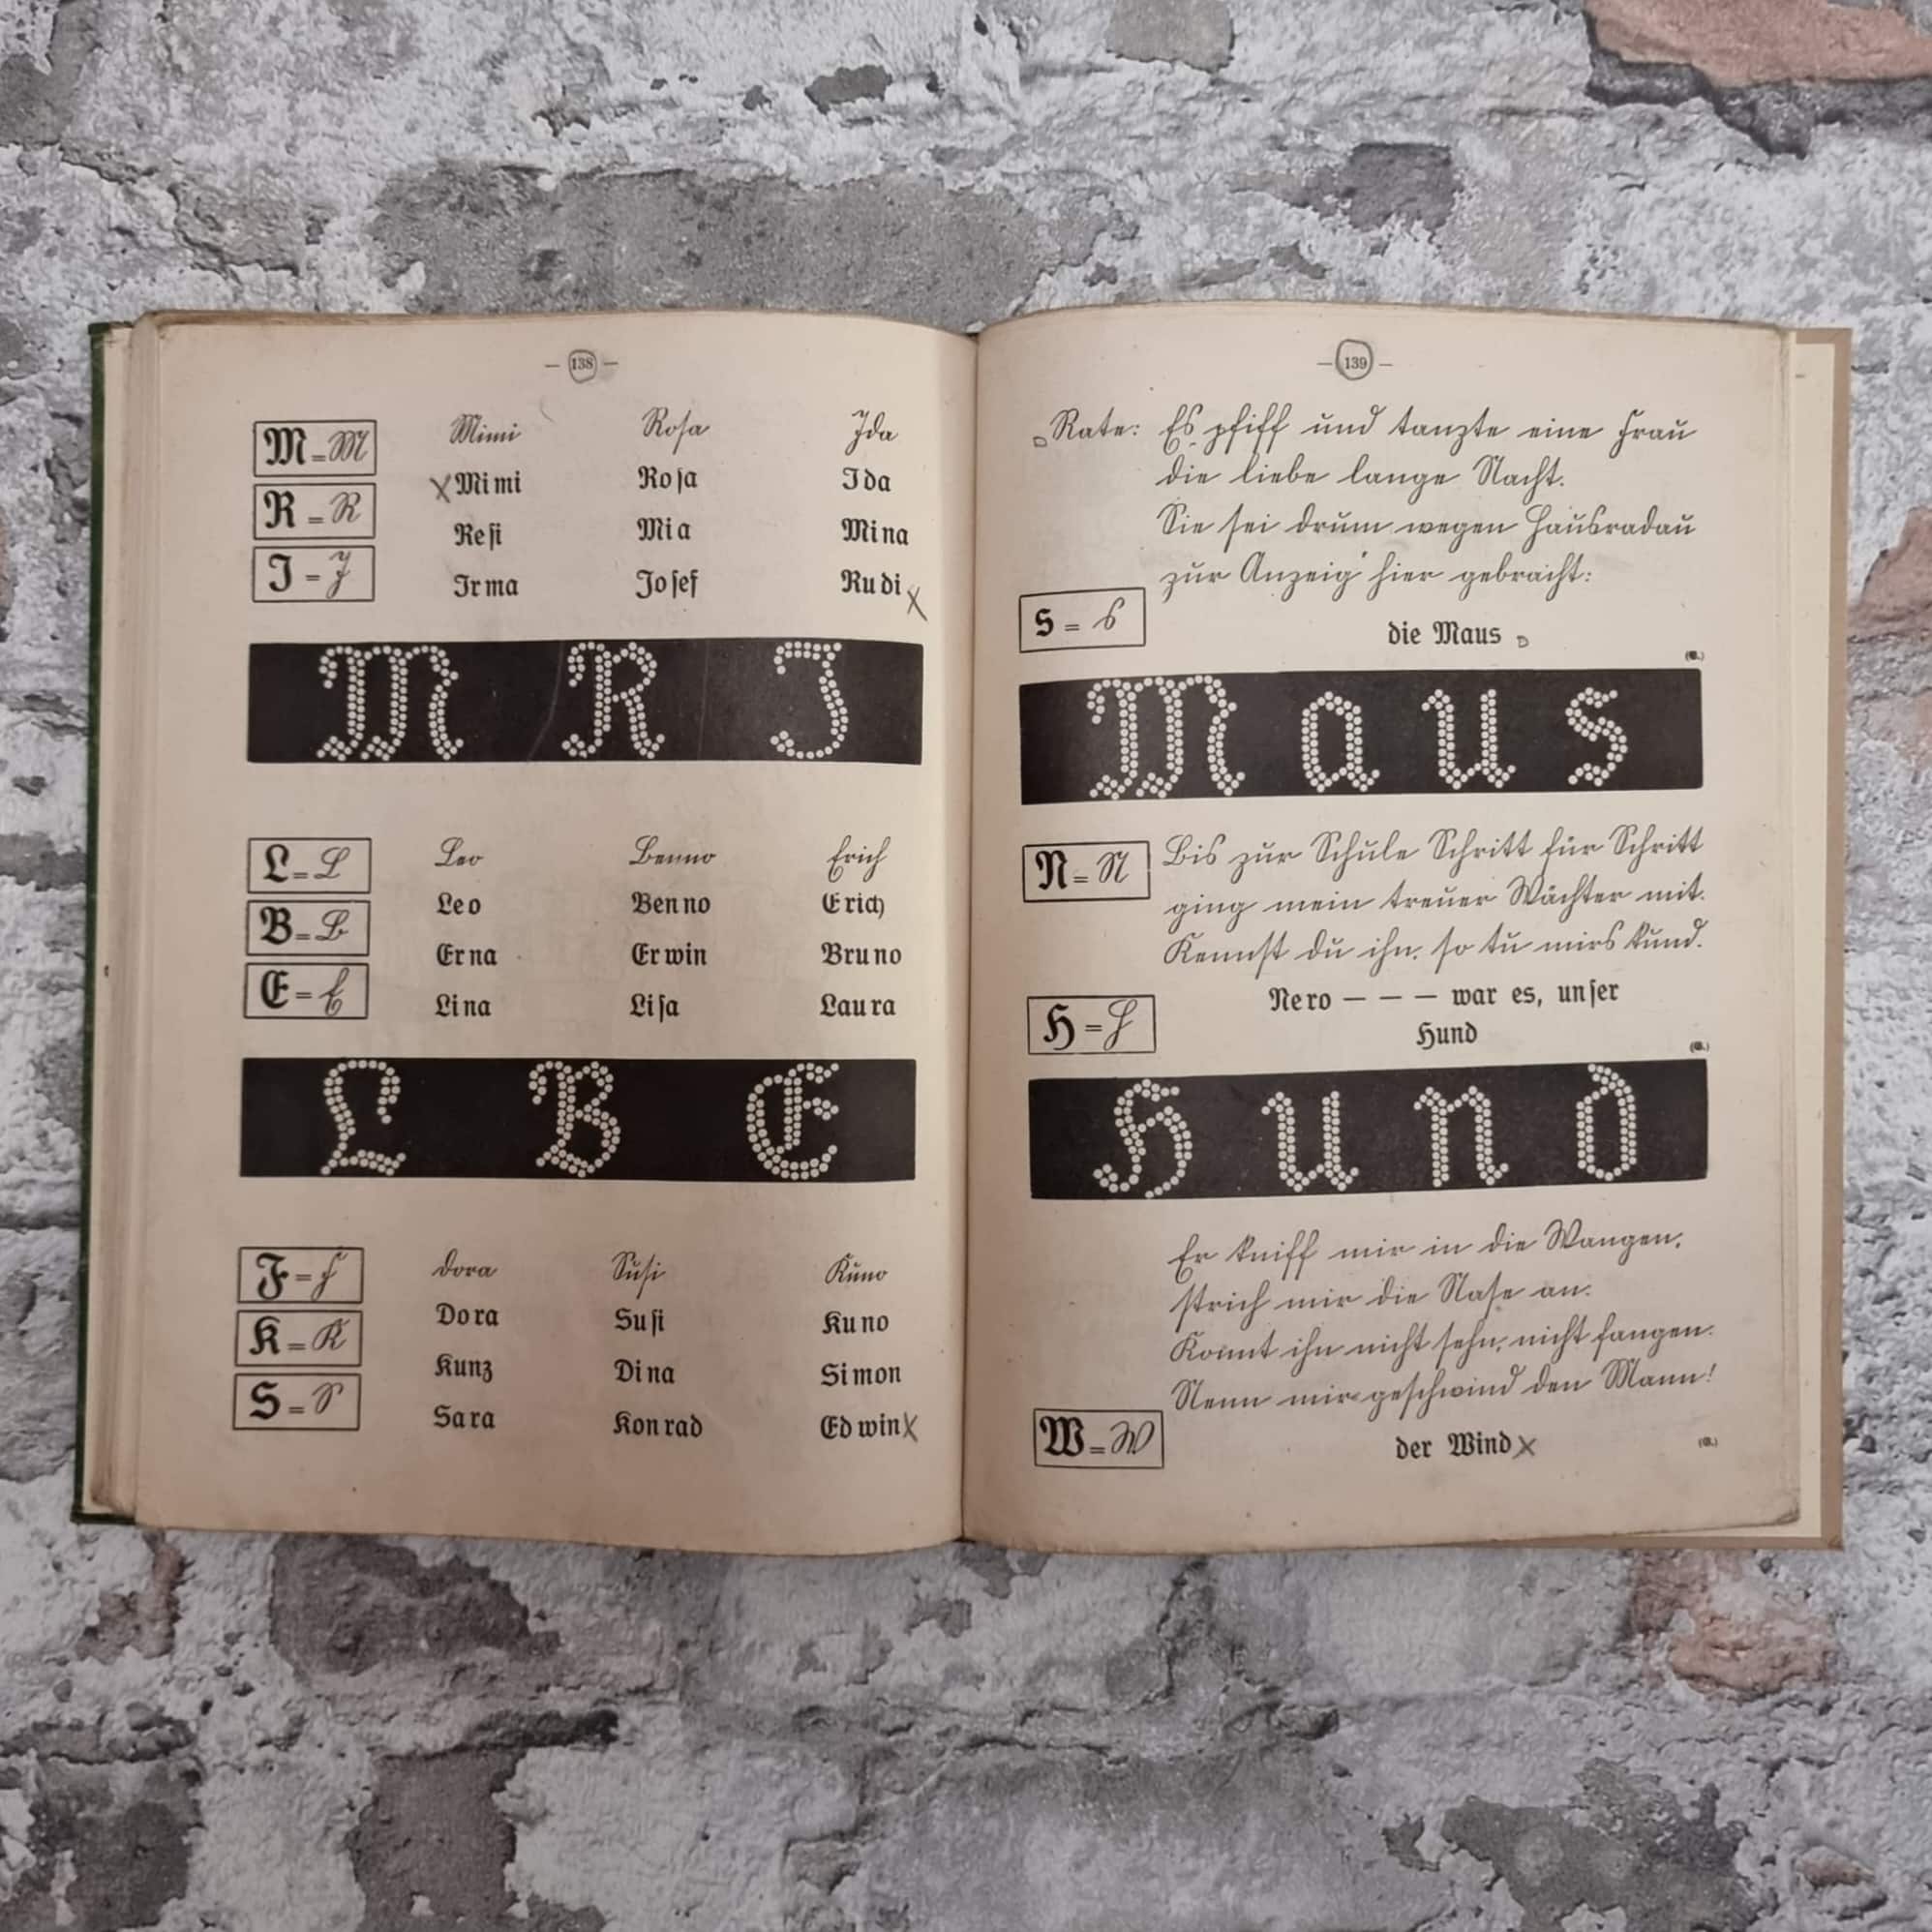 — 138 —
M = M
Mimi Rosa Ida
Mimi Rosa Ida
R = R
Resi Mia Mina
I = I
Irma Josef Rudi
M R I
L = L
Leo Benno Erich
Leo Benno Erich
B = B
Erna Erwin Bruno
E = E
Lina Lisa Laura
L B E
F = F
Dora Susi Kuno
Dora Susi Kuno
K = K
Kunz Dina Simon
S = S
Sara Konrad Edwin
— 139 —
Rate: Es pfiff und tanzte eine Frau
die liebe lange Nacht.
Sie sei drum wegen Hausradau
zur Anzeig' hier gebracht:
s = s
die Maus
(G.)
Maus
N = N
Bis zur Schule Schritt für Schritt
ging mein treuer Wächter mit.
Kennst du ihn, so tu mirs kund.
Nero — — — war es, unser
H = H
Hund
(G.)
Hund
Er kniff mir in die Wangen,
strich mir die Nase an.
Konnt ihn nicht sehn, nicht fangen.
Nenn mir geschwind den Mann!
W = W
der Wind
(G.)